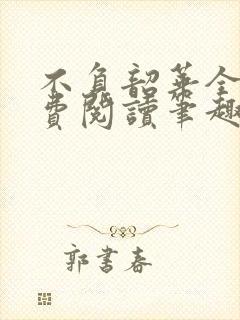 不負韶華全
費閱讀筆趣
郭書春